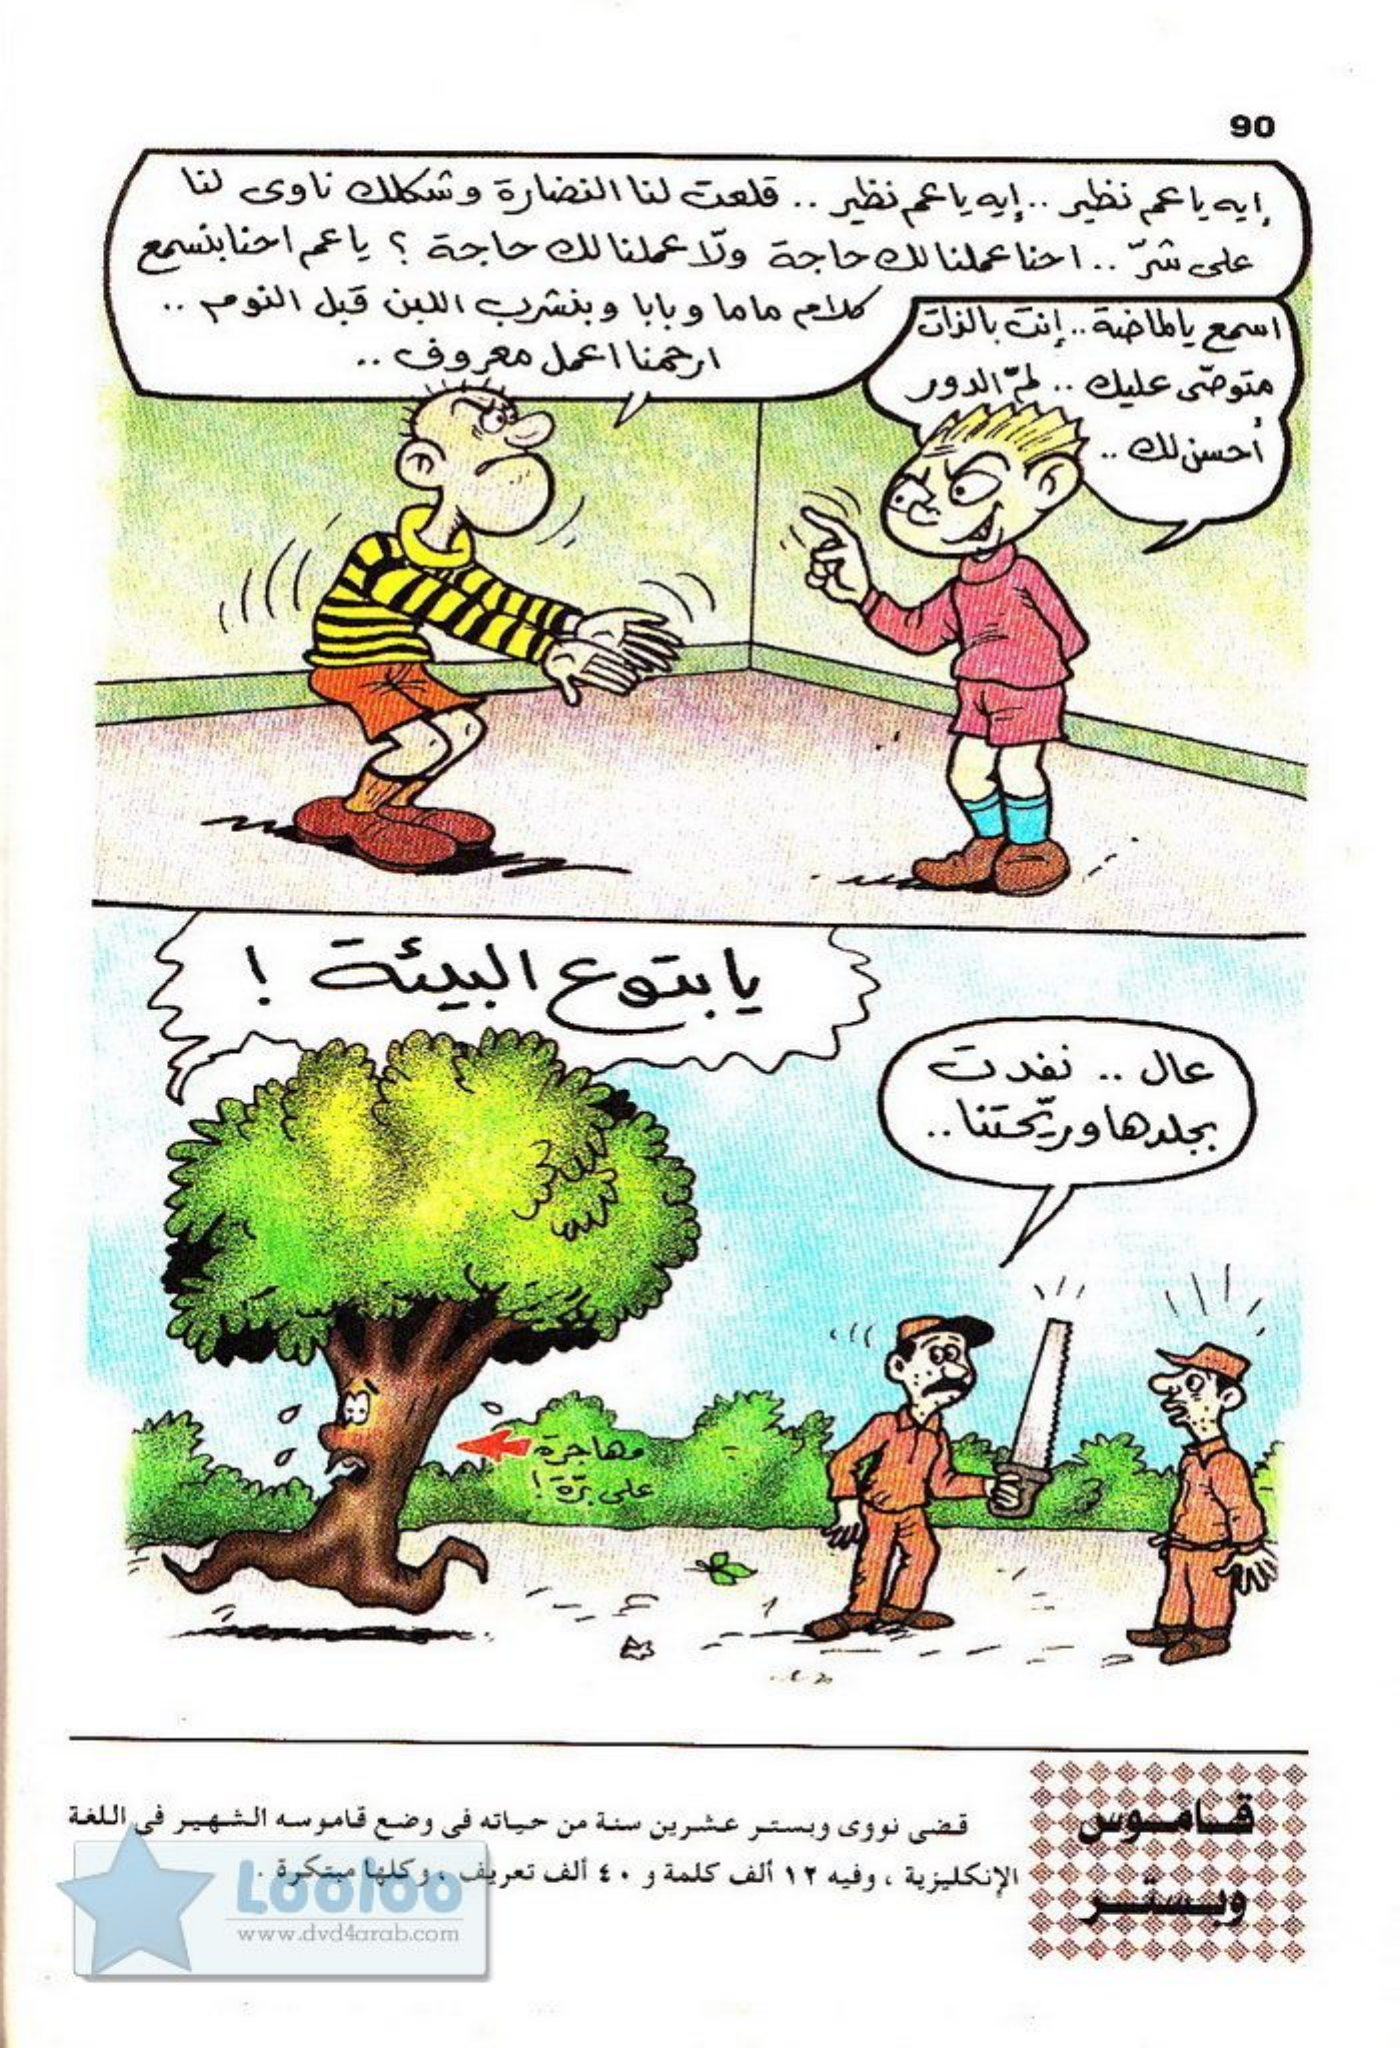 90
إيه يا عم نظير .. إيه يا عم نظير .. قلعت لنا النضارة وشكلك ناوى لنا
على شرّ .. احنا عملنا لك حاجة ولّا عملنا لك حاجة ؟ يا عم احنا بنسمع
كلام ماما وبابا وبنشرب اللبن قبل النوم ..
ارحمنا اعمل معروف ..
اسمع يا لماضة .. إنت بالذات
متوصّى عليك .. لمّ الدور
أحسن لك ..
يا بتوع البيئة !
عال .. نفدت
بجلدها وريّحتنا ..
مهاجرة
على برّة !
قاموس
وبستر
قضى نووى وبستر عشرين سنة من حياته فى وضع قاموسه الشهير فى اللغة
الإنكليزية ، وفيه ١٢ ألف كلمة و ٤٠ ألف تعريف ، وكلها مبتكرة .
Looloo
www.dvd4arab.com